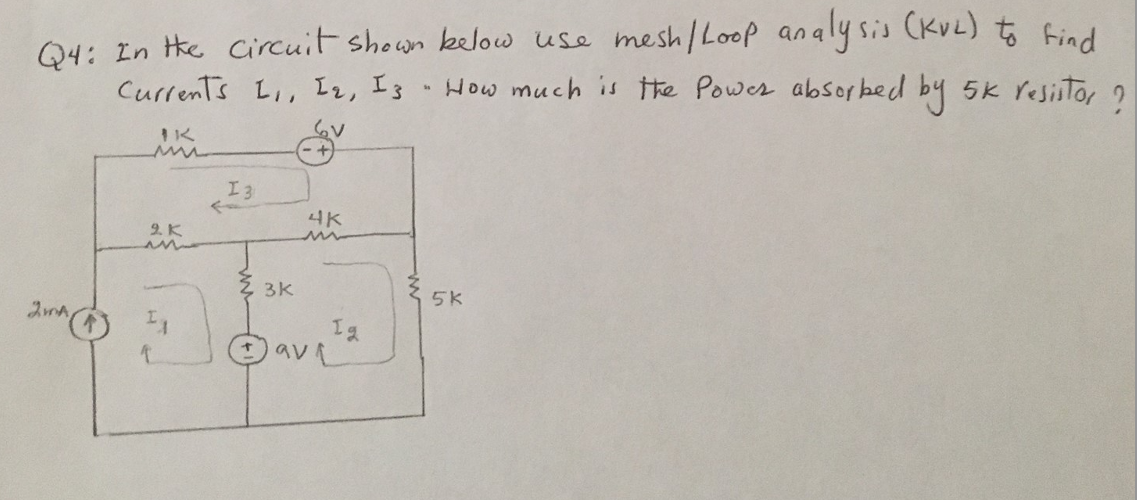 Q4: In the circuit shown below use mesh/Loop analysis (KVL) to find
Currents I1, I2, I3. How much is the Power absorbed by 5K resistor?
1K
6V
- +
I3
2K
4K
3K
5K
2mA
I1
I2
+
-
9V